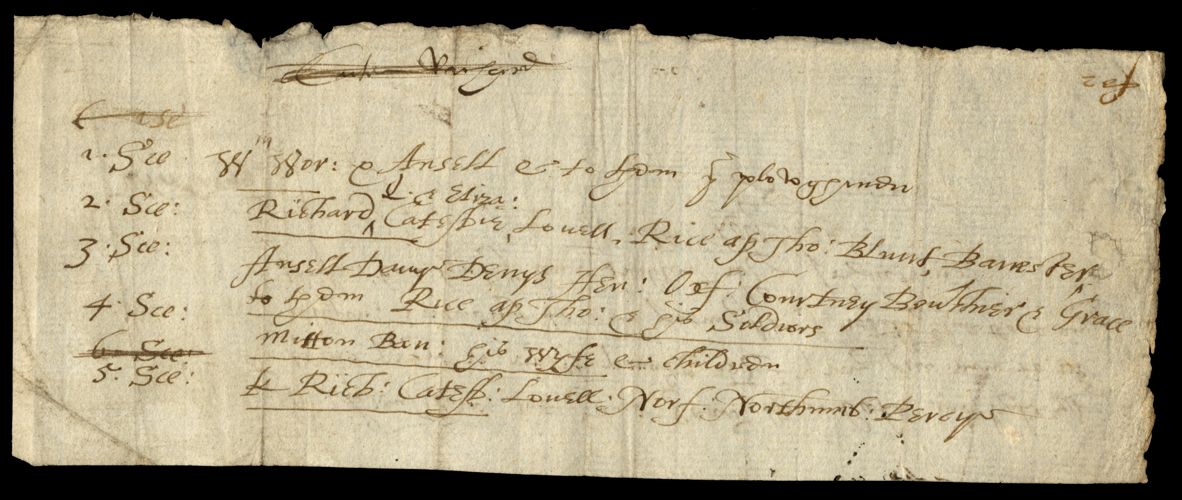 1. Sce W^m Wor: & Ansell & to them y^e plowghmen
Q. & Eliza:
2. Sce: Richard Catesbie, Lovell, Rice ap Tho: Blunt, Banester
3. Sce: Ansell Davys Denys Hen: Oxf: Courtney Bourchier & Grace
to them Rice ap Tho: & his Soldiors
4. Sce: Mitton Ban: his wyfe & children
6. Sce:
5. Sce: K Rich: Catesb: Lovell. Norf. Northumb: Percye